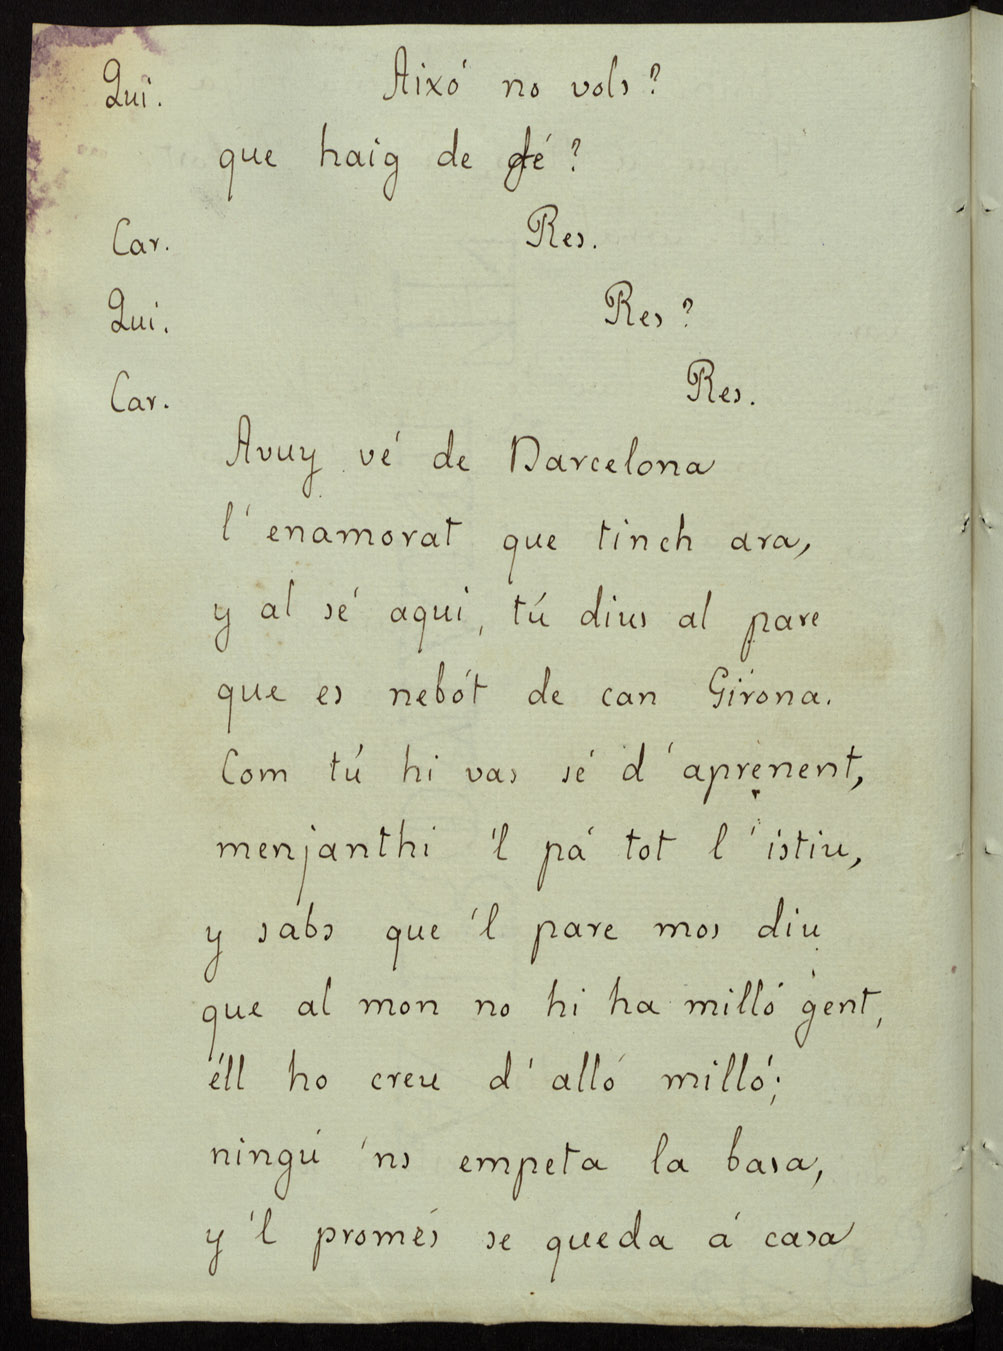 Qui. Aixó no vols?
que haig de fé?
Car. Res.
Qui. Res?
Car. Res.
Avuy vé de Barcelona
l' enamorat que tinch ara,
y al sé aqui, tú dius al pare
que es nebót de can Girona.
Com tú hi vas sé d' aprenent,
menjanthi 'l pá tot l' istiu,
y sabs que 'l pare mos diu
que al mon no hi ha milló gent,
éll ho creu d' alló milló;
ningú 'ns empeta la basa,
y 'l promés se queda á casa